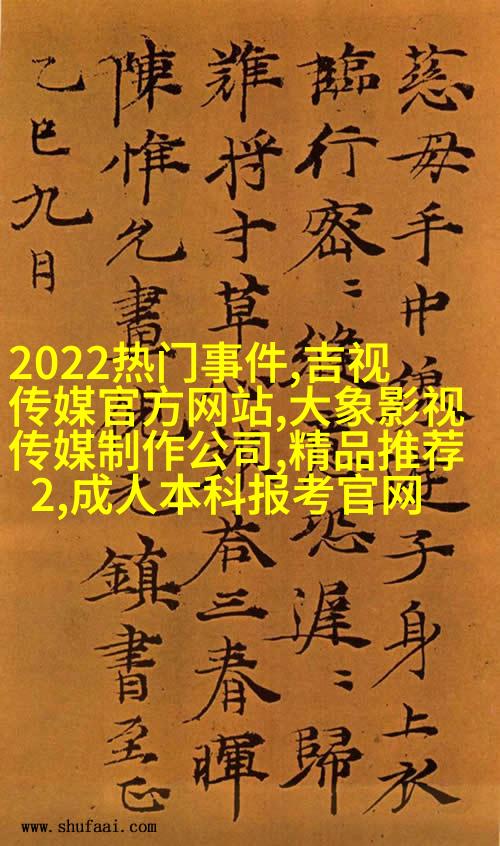 慈母手中線遊子身上衣
臨行密〻縫恐遲〻歸
難将寸草荅三春暉
陳惟允畫元鎮書至正
乙巳九月
2022热门事件,吉视
传媒官方网站,大象影视
传媒制作公司,精品推荐
2,成人本科报考官网
www.shufaai.com